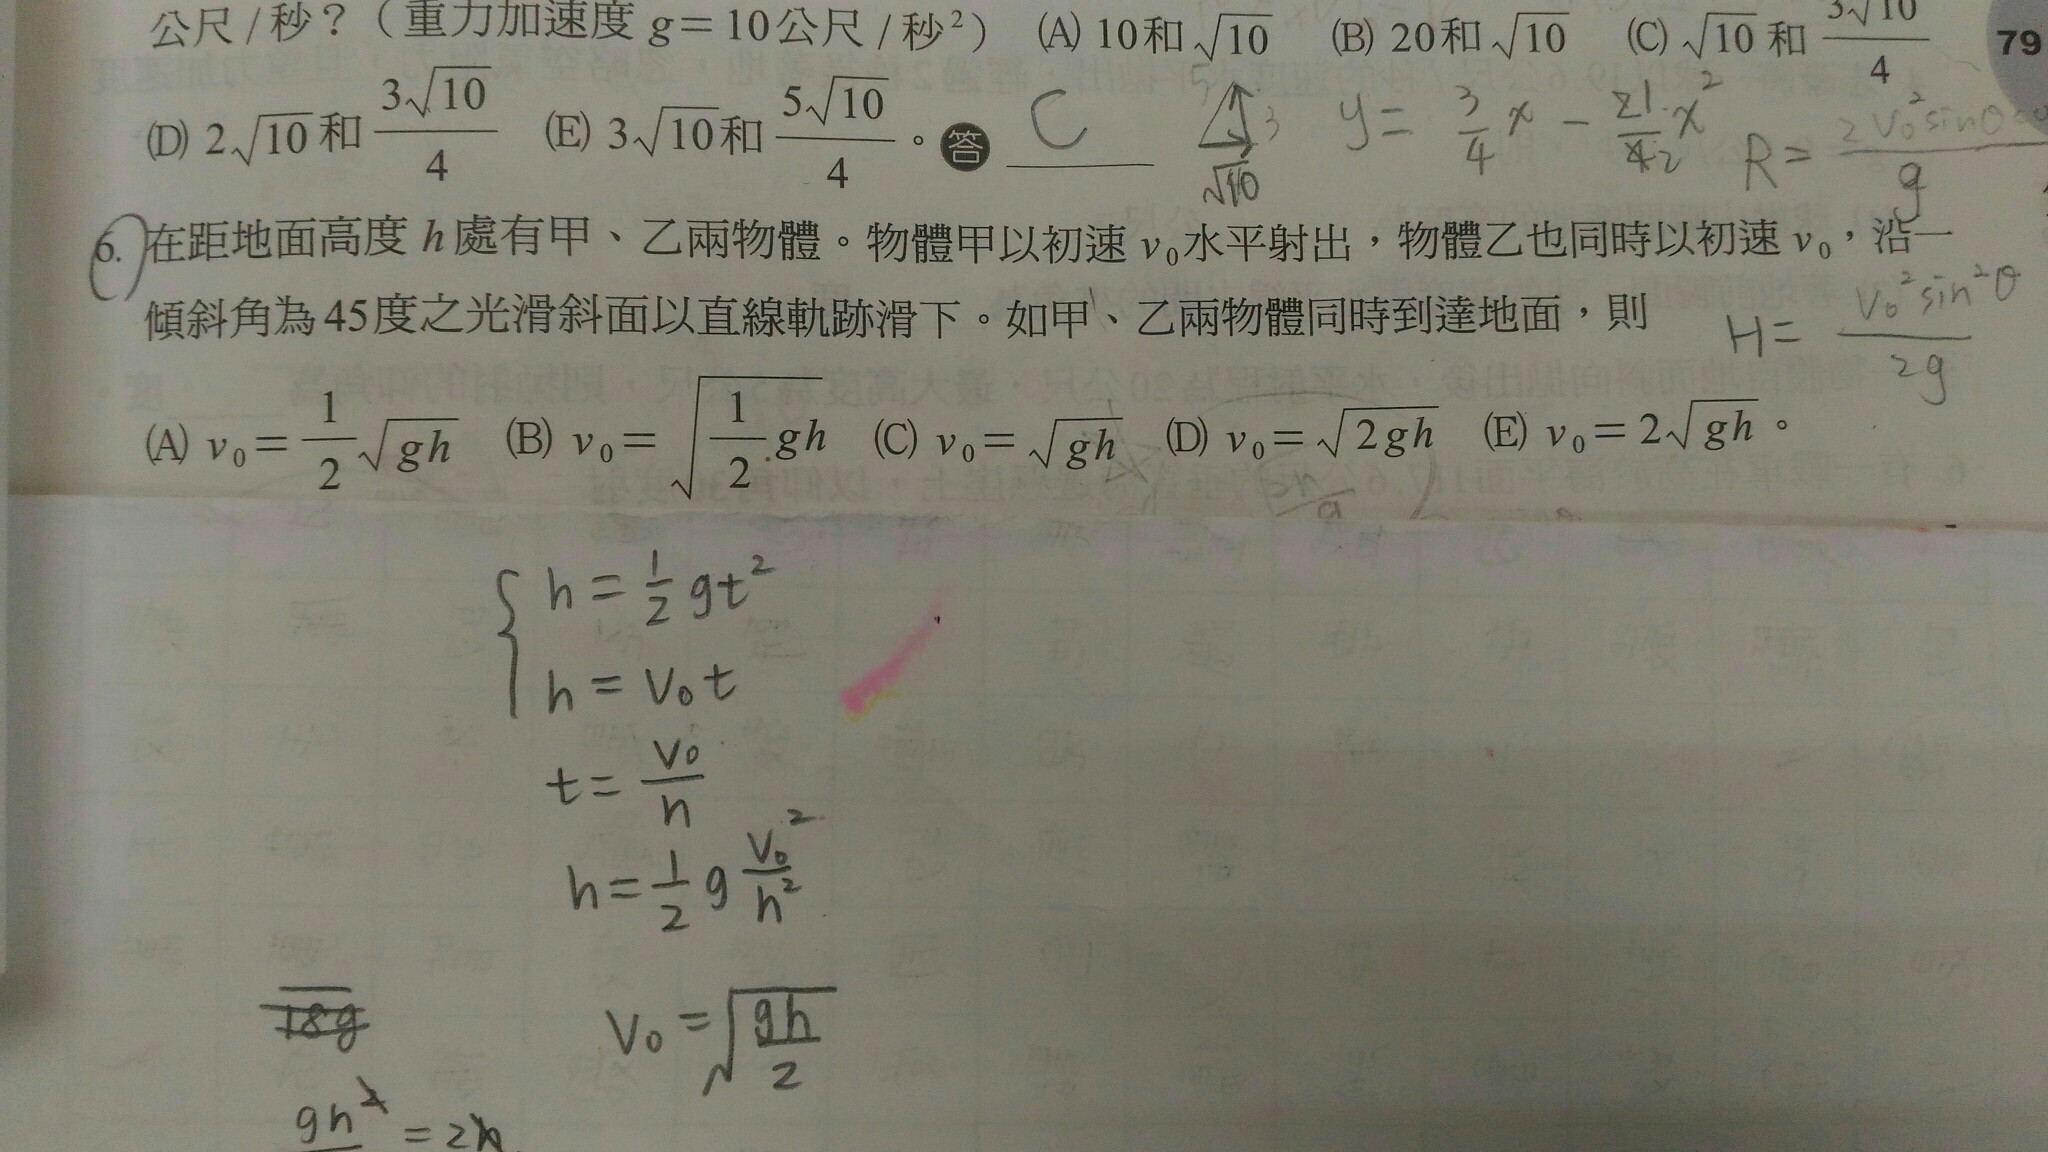 公尺/秒?(重力加速度 g=10公尺/秒²) (A) 10和√10 (B) 20和√10 (C) √10和 3√10/4
79
(D) 2√10和 3√10/4 (E) 3√10和 5√10/4。答 C
5 3 √10
y= 3/4 x - x²
R= 2V₀²sinθ /g
6. 在距地面高度 h 處有甲、乙兩物體。物體甲以初速 v₀水平射出,物體乙也同時以初速 v₀,沿一
傾斜角為45度之光滑斜面以直線軌跡滑下。如甲、乙兩物體同時到達地面,則
H= V₀²sin²θ/2g
(A) v₀=1/2√gh (B) v₀=√(1/2 gh) (C) v₀=√gh (D) v₀=√2gh (E) v₀=2√gh。
h=1/2 gt²
h=V₀t
t=V₀/h
h=1/2 g V₀²/h²
18g
V₀=√(gh/2)
gh² =2h